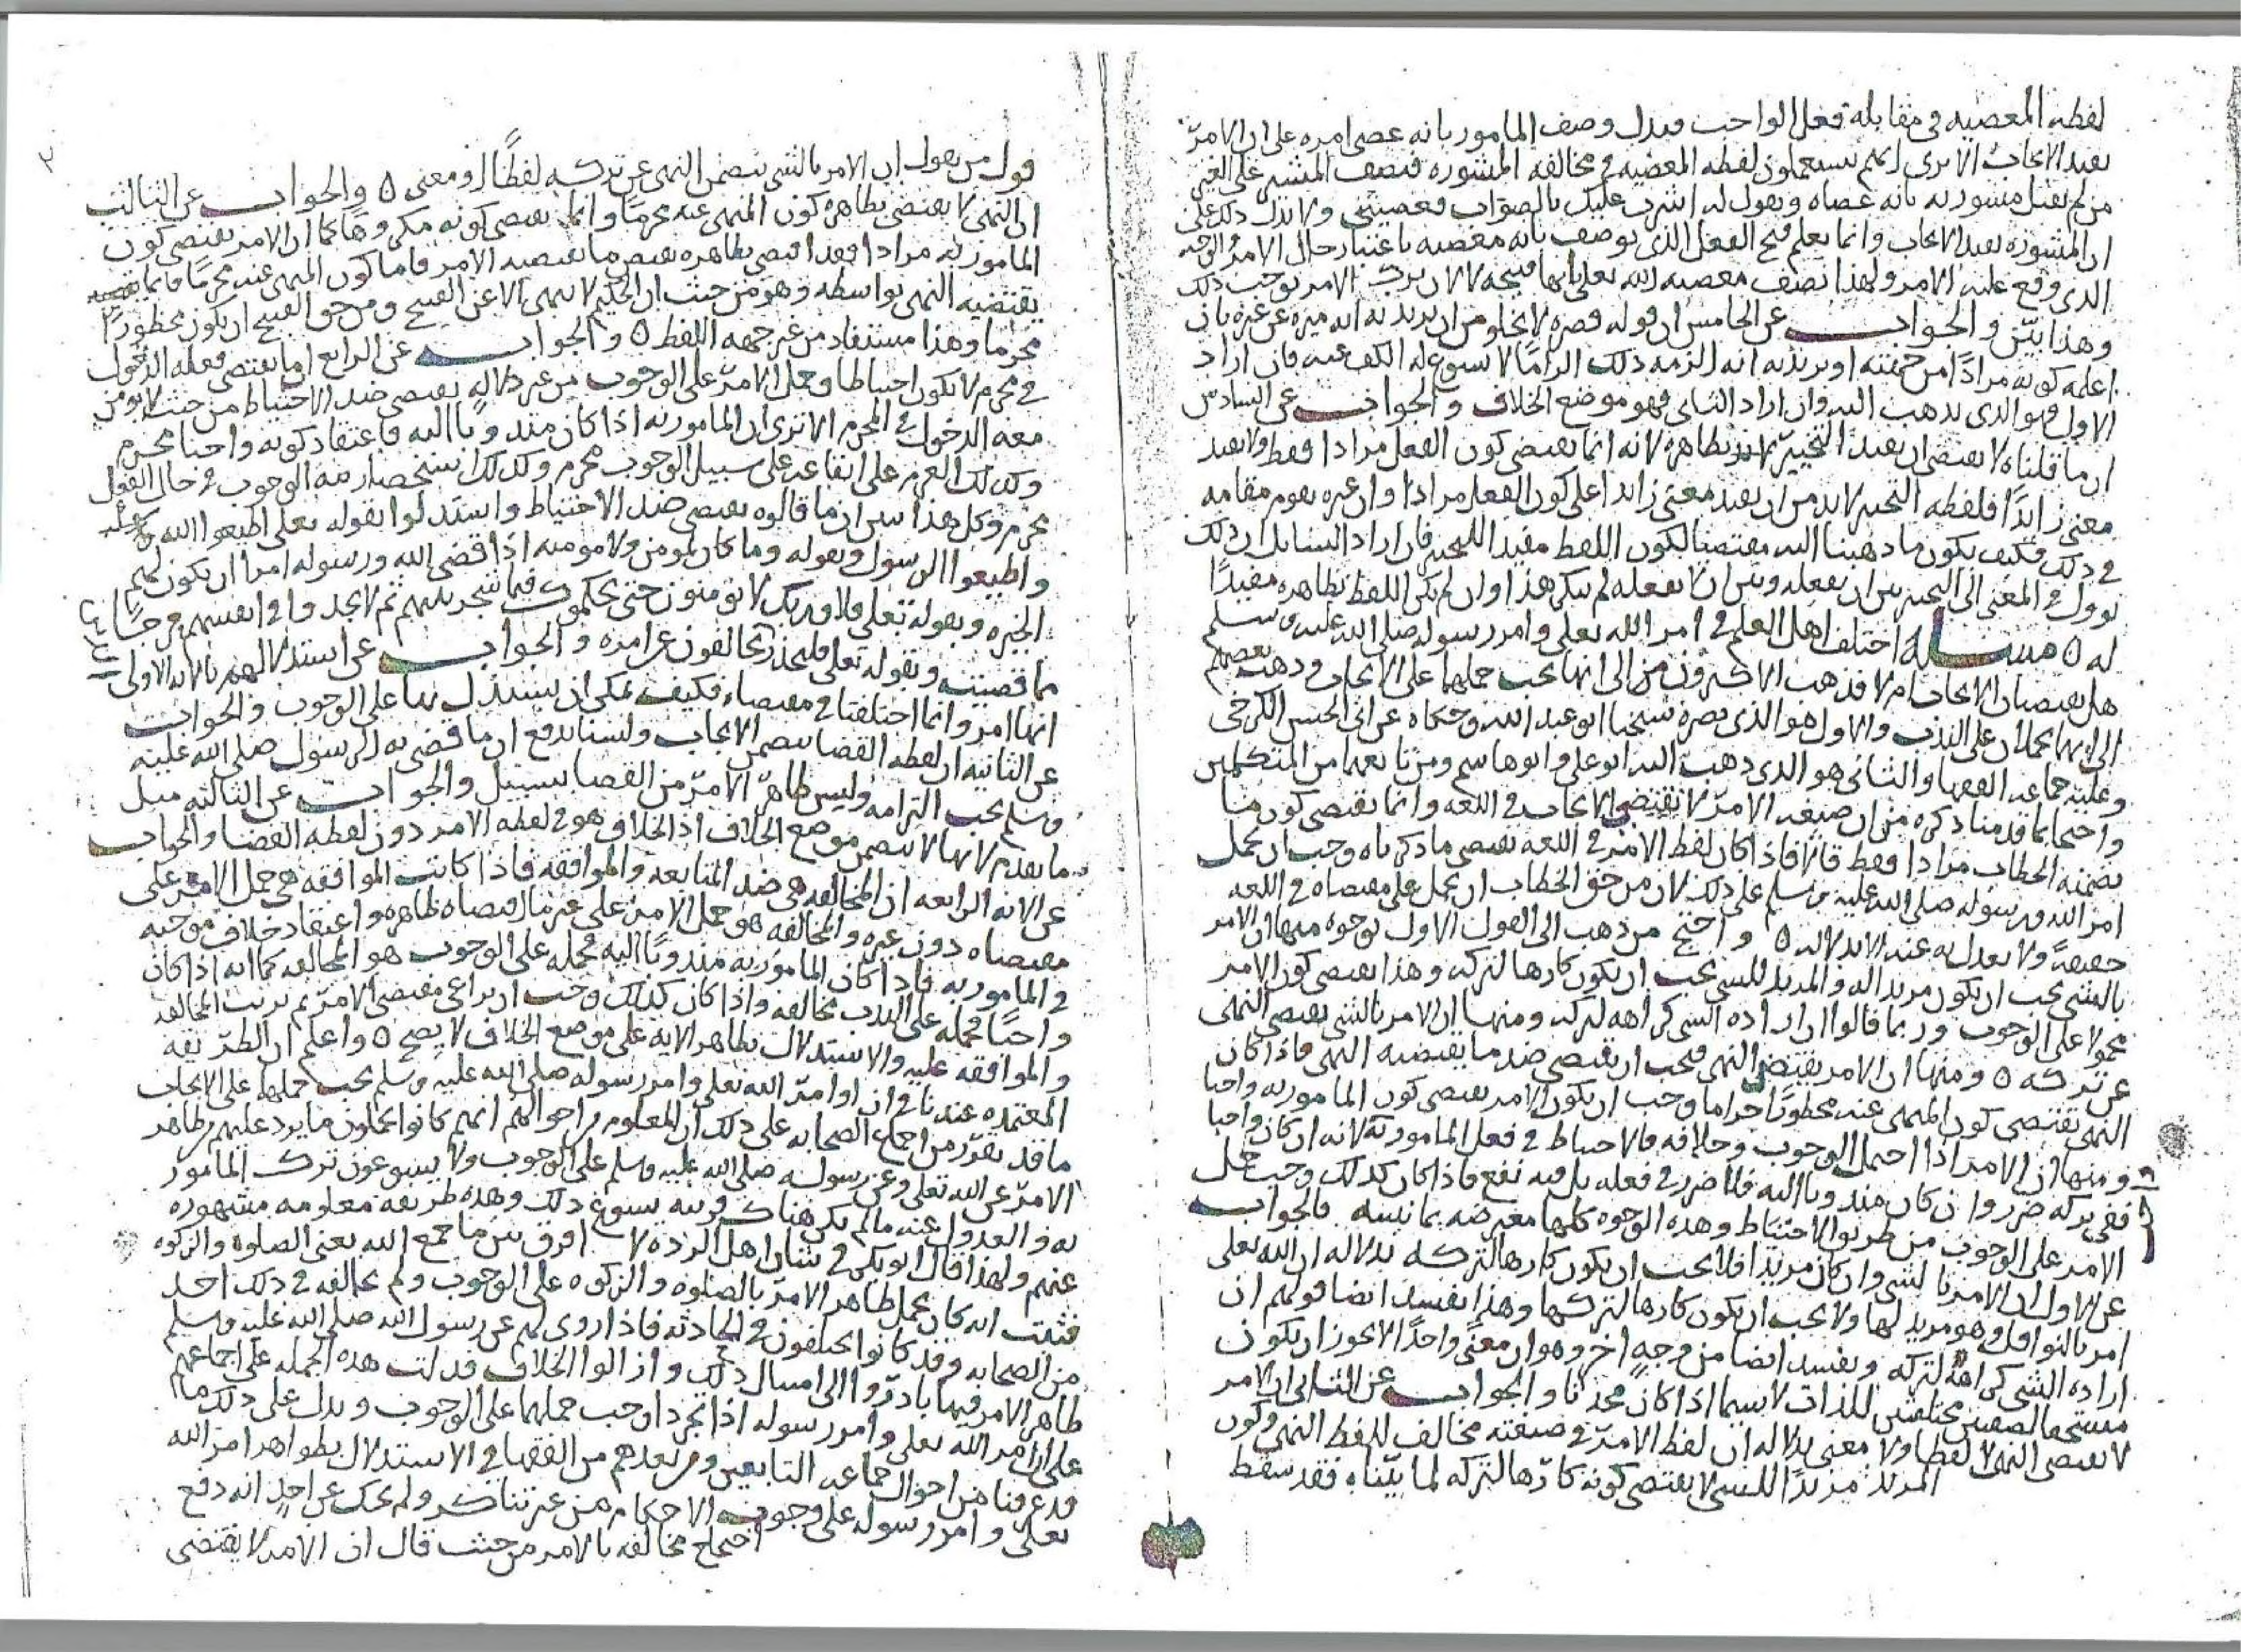 لفظه المعصيه في مقابله فعل الواجب فيدل وصف المامور بانه عصى امره على ان الامر
يفيد الايجاب الا ترى انهم يستعملون لفظه المعصيه في مخالفه المشوره فيصف المشير على الغير
من لم يقبل مشورته بانه عصاه ويقول له اشرت عليك بالصواب فعصيتني ولا يدل ذلك على
ان المشوره تفيد الايجاب وانما يعلم قبح الفعل الذي يوصف بانه معصيه باعتبار حال الامر والوجه
الذي وقع عليه الامر ولهذا نصف معصيه الله تعلى بانها قبيحه لا لان ترك الامر يوجب ذلك
وهذا بيّن والجواب عن الخامس ان قوله قصره لا يخلو من ان يريد به انه ميزه عن غيره بان
اعلمه كونه مرادًا من جهته او يريد به انه الزمه ذلك الزامًا لا يسوغ له الكف عنه فان اراد
الاول فهو الذي نذهب اليه وان اراد الثاني فهو موضع الخلاف والجواب عن السادس
ان ما قلناه لا يقتضي ان يفيد التخيير بظاهره لانه انما يقتضي كون الفعل مرادا فقط ولا يفيد
معنى زايدًا فلفظه التخيير لا بد من ان يفيد معنى زايدا على كون الفعل مرادا وان غيره يقوم مقامه
في ذلك فكيف يكون ما ذهبنا اليه مقتضيا لكون اللفظ مفيدا للتخيير فان اراد السايل ان ذلك
يوول في المعنى الى التخيير بين ان يفعله وبين ان لا يفعله لم ننكر هذا وان لم يكن اللفظ بظاهره مفيدًا
له ٥ مسـله اختلف اهل العلم في امر الله تعلى وامر رسوله صلى الله عليه وسلم
هل يقتضيان الايجاب ام لا فذهب الاكثرون الى انها يجب حملها على الايجاب وذهب بعضهم
الى انها يحملان على الندب والاول هو الذي نصره شيخنا ابو عبد الله وحكاه عن ابي الحسن الكرخي
وعليه جماعه الفقها والثاني هو الذي ذهب اليه ابو علي وابو هاشم ومن تابعهما من المتكلمين
واحتجا بما قدمنا ذكره من ان صيغه الامر لا تقتضي الايجاب في اللغه وانما يقتضي كون ما
تضمنه الخطاب مرادا فقط قالا فاذا كان لفظ الامر في اللغه يقتضي ما ذكرناه وجب ان يحمل
امر الله ورسوله صلى الله عليه وسلم على ذلك لان من حق الخطاب ان يحمل على مقتضاه في اللغه
حقيقهً ولا يعدل به عنه الا بدلاله ٥ واحتج من ذهب الى القول الاول بوجوه منها ان الامر
بالشي يجب ان يكون مريدا له والمريد للشي يجب ان يكون كارها لتركه وهذا يقتضي كون الامر
محمولا على الوجوب وربما قالوا ان اراده الشي كراهه لتركه ومنها ان الامر بالشي يقتضي النهي
عن تركه ٥ ومنها ان الامر يقتضي النهي فيجب ان يقتضي ضد ما يقتضيه النهي فاذا كان
النهي يقتضي كون المنهي عنه محظورًا حراما وجب ان يكون الامر يقتضي كون المامور به واجبا
ومنها ان الامر اذا احتمل الوجوب وخلافه فالاحتياط في فعل المامور به لانه ان كان واجبا
ففي تركه ضرر وان كان مندوبا اليه فلا ضرر في فعله بل فيه نفع فاذا كان كذلك وجب حمل
الامر على الوجوب من طريق الاحتياط وهذه الوجوه كلها معترضه بما نبينه فالجواب
عن الاول ان الامر بالشي وان كان مريدا فلا يجب ان يكون كارها لتركه بدلاله ان الله تعلى
امر بالنوافل وهو مريد لها ولا يجب ان يكون كارها لتركها وهذا يفسد ايضا قولهم ان
اراده الشي كراهه لتركه ويفسد ايضا من وجه اخر وهو ان معنى واحدًا لا يجوز ان يكون
مستحقا لصفتين مختلفتين للذات لا سيما اذا كان محدثا والجواب عن الثاني ان الامر
لا يقتضي النهي لا لفظا ولا معنى بدلاله ان لفظ الامر في صيغته مخالف للفظ النهي وكون
المريد مريدًا للشي لا يقتضي كونه كارها لتركه لما بيّناه فقد سقط
قول من يقول ان الامر بالشي يتضمن النهي عن تركه لفظًا او معنى ٥ والجواب عن الثالث
ان النهي لا يقتضي بظاهره كون المنهي عنه محرمًا وانما يقتضي كونه مكروهًا كما ان الامر يقتضي كون
المامور به مرادا فقد اقتضى بظاهره نقيض ما يقتضيه الامر فاما كون المنهي عنه محرمًا فانما يقتضيه
يقتضيه النهي بواسطه وهو من حيث ان الحكيم لا ينهى الا عن القبيح ومن حق القبيح ان يكون محظورًا
محرما وهذا مستفاد من غير جهه اللفظ ٥ والجواب عن الرابع ان ما يقتضي فعله الدخول
في محرم لا يكون احتياطا وحمل الامر على الوجوب من غير دلاله يقتضي ضد الاحتياط من حيث لا يومن
معه الدخول في المحرم الا ترى ان المامور به اذا كان مندوبًا اليه فاعتقاد كونه واجبا محرم
وكذلك العزم على ايقاعه على سبيل الوجوب محرم وكذلك استحضار نيه الوجوب في حال الفعل
محرم وكل هذا يبين ان ما قالوه يقتضي ضد الاحتياط واستدلوا بقوله تعلى اطيعوا الله
واطيعوا الرسول وبقوله وما كان لمومن ولا مومنه اذا قضى الله ورسوله امرا ان يكون لهم
الخيره وبقوله تعلى فلا وربك لا يومنون حتى يحكموك فيما شجر بينهم ثم لا يجدوا في انفسهم حرجًا
مما قضيت وبقوله تعلى فليحذر الذين يخالفون عن امره والجواب عن استدلالهم بالايه الاولى
انها امر وانما اختلفنا في مقتضاه فكيف يمكن ان يستدل بها على الوجوب والجواب
عن الثانيه ان لفظه القضا يتضمن الايجاب ولسنا ندفع ان ما قضى به الرسول صلى الله عليه
وسلم يجب التزامه وليس ظاهر الامر من القضا بسبيل والجواب عن الثالثه مثل
ما تقدم لانها لا تتضمن موضع الخلاف اذ الخلاف هو في لفظه الامر دون لفظه القضا والجواب
عن الايه الرابعه ان المخالفه هي ضد المتابعه والموافقه فاذا كانت الموافقه هي حمل الامر على
مقتضاه دون غيره والمخالفه هو حمل الامر على غير ما اقتضاه ظاهره واعتقاد خلاف موجبه
في المامور به فاذا كان المامور به مندوبًا اليه فحمله على الوجوب هو المخالفه كما انه اذا كان
واجبًا فحمله على الندب مخالفه واذا كان كذلك وجب ان يراعى مقتضى الامر ثم يرتب المخالفه
والموافقه عليه والاستدلال بظاهر الايه على موضع الخلاف لا يصح ٥ واعلم ان الطريقه
المعتمده عندنا في ان اوامر الله تعلى وامر رسوله صلى الله عليه وسلم يجب حملها على الايجاب
ما قد تقرر من اجماع الصحابه على ذلك لان المعلوم من احوالهم انهم كانوا يحملون ما يرد عليهم من ظاهر
الامر عن الله تعلى وعن رسوله صلى الله عليه وسلم على الوجوب ولا يسوغون ترك المامور
به والعدول عنه ما لم يكن هناك قرينه يسوغ ذلك وهذه طريقه معلومه مشهوره
عنهم ولهذا قال ابو بكر في شان اهل الرده لا افرق بين ما جمع الله يعني الصلوه والزكوه
فثبت انه كان يحمل ظاهر الامر بالصلوه والزكوه على الوجوب ولم يخالفه في ذلك احد
من الصحابه وقد كانوا يختلفون في الحادثه فاذا روي لهم عن رسول الله صلى الله عليه وسلم
ظاهر الامر فيها بادروا الى امتثال ذلك وازالوا الخلاف فدلت هذه الجمله على اجماعهم
على ان امر الله تعلى وامر رسوله اذا تجردا وجب حملهما على الوجوب ويدل على ذلك ما
قد عرفنا من احوال جماعه التابعين ومن بعدهم من الفقها في الاستدلال بظواهر امر الله
تعلى وامر رسوله على وجوب الاحكام من غير تناكر ولم يحك عن احد انه دفع
احتجاج مخالفه بالامر من حيث قال ان الامر لا يقتضي